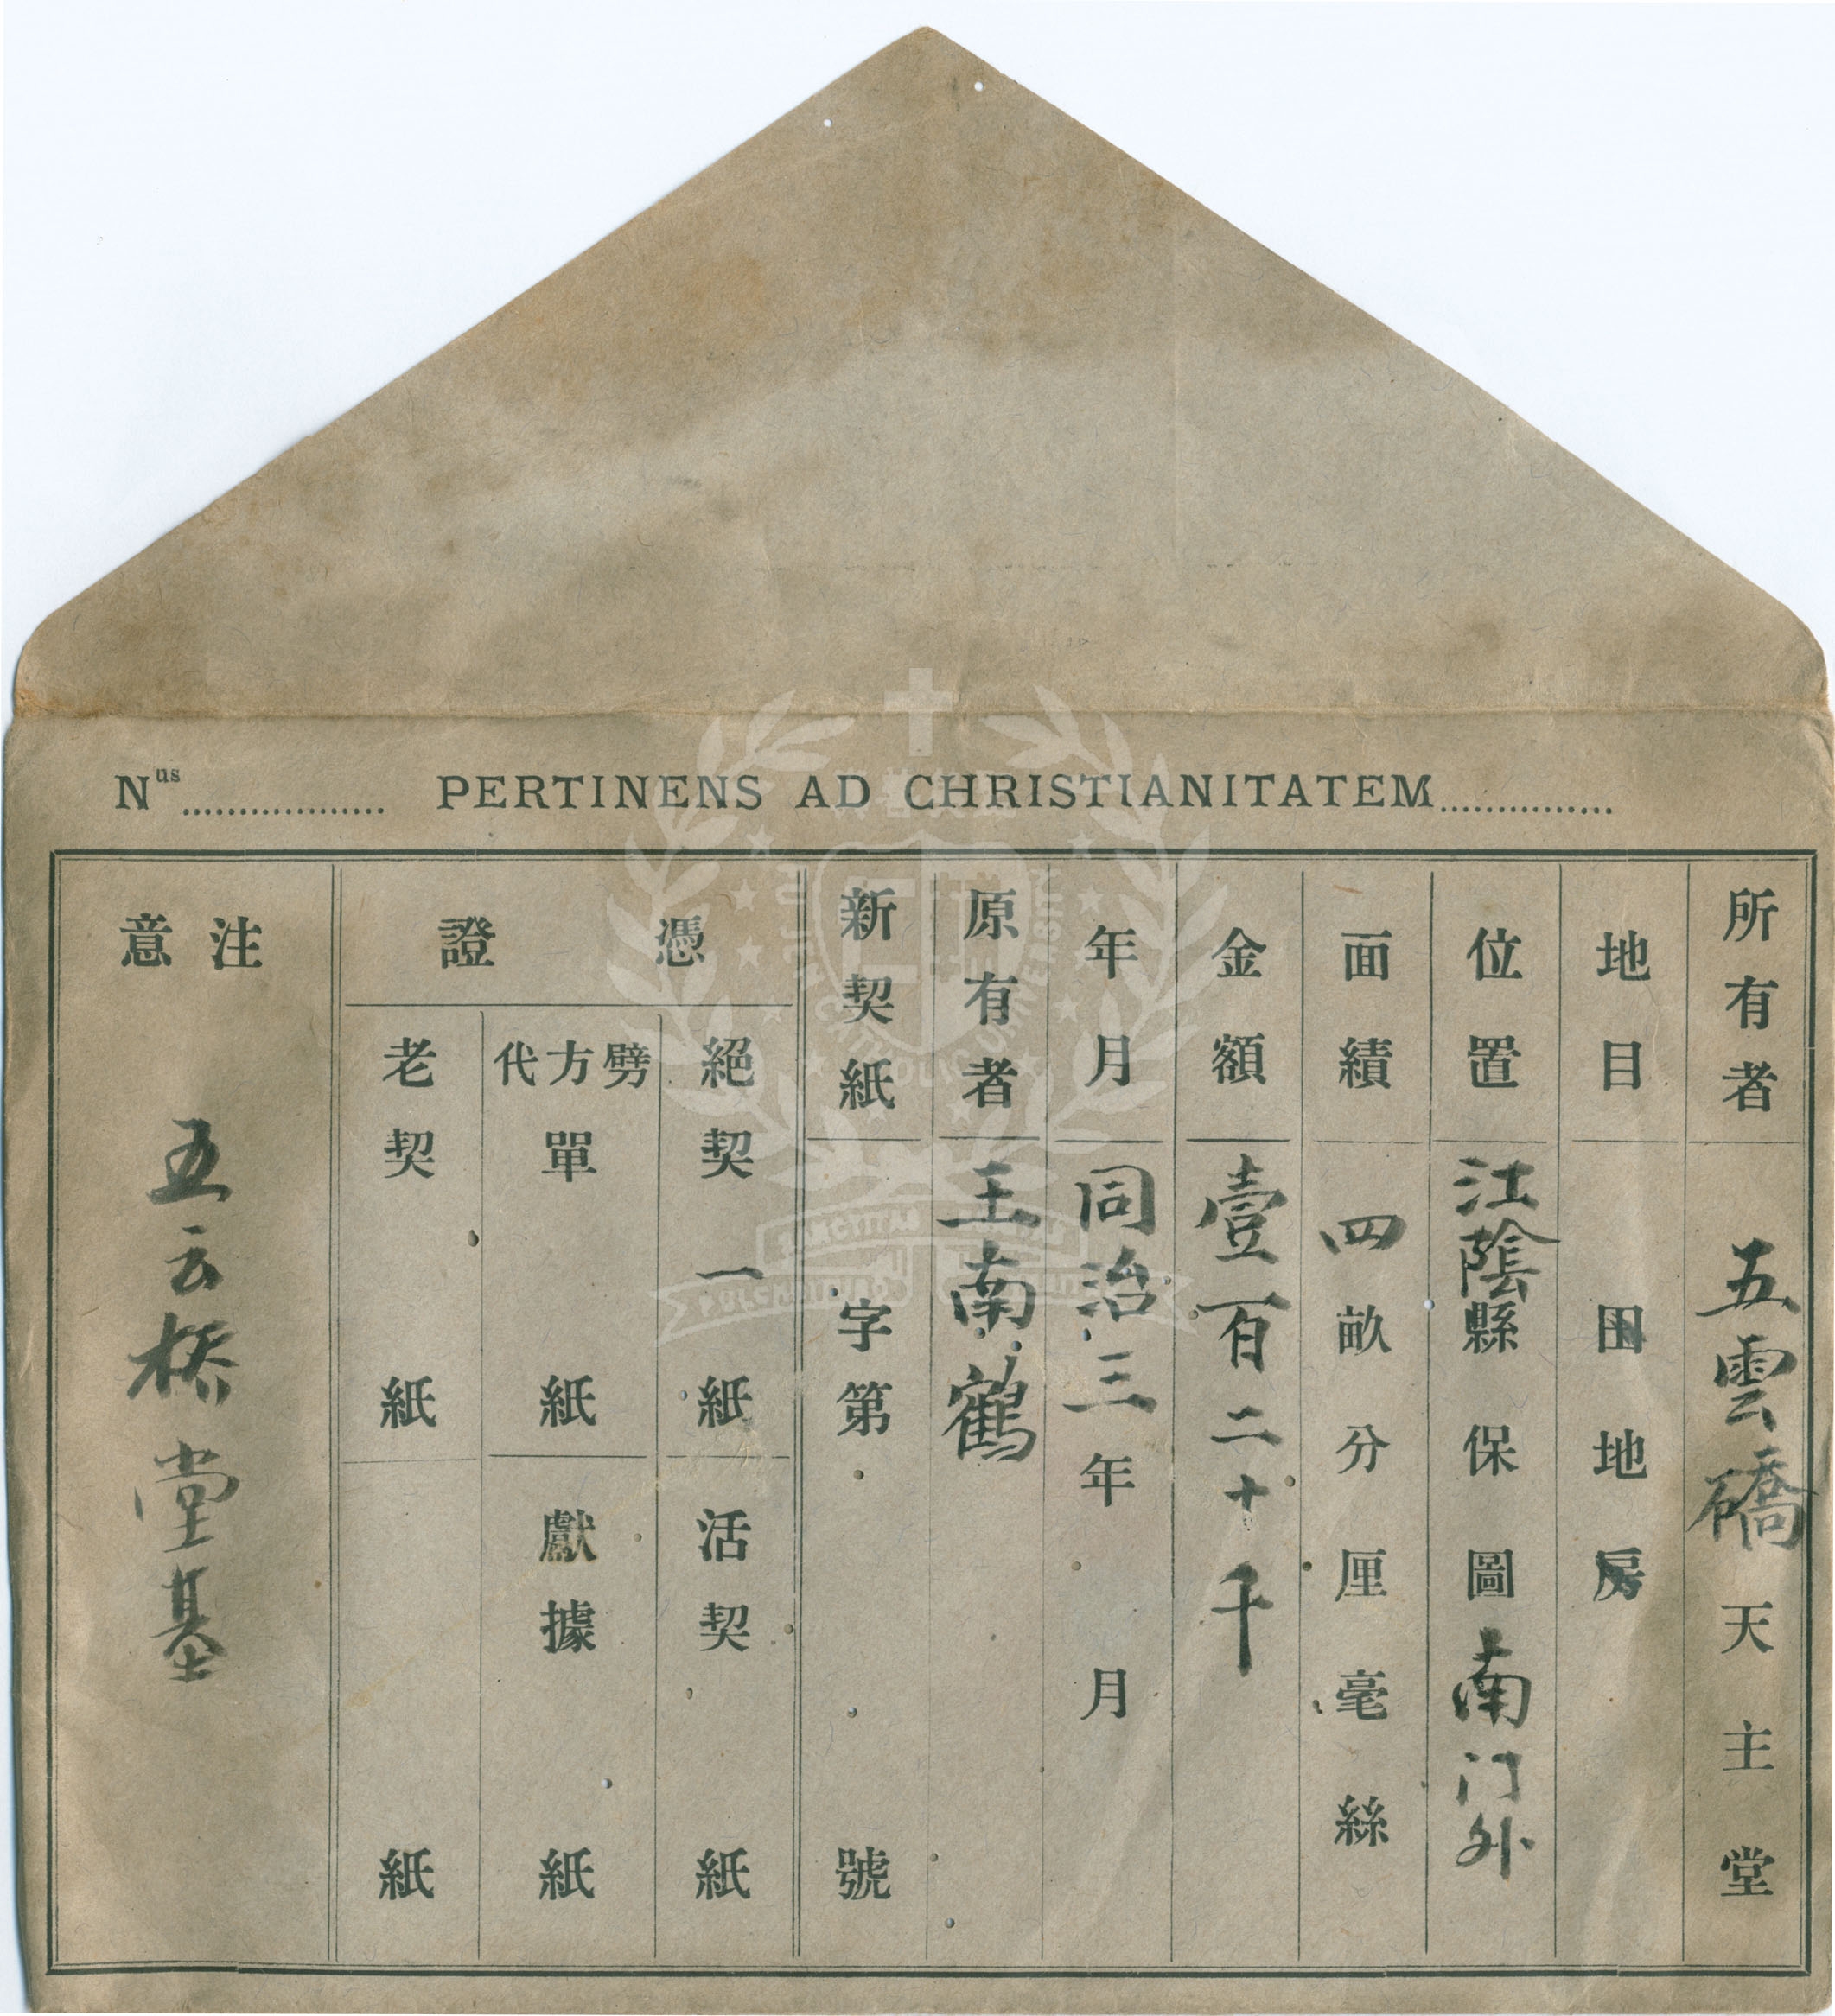 Nus.................. PERTINENS AD CHRISTIANITATEM...............
所有者 五雲礄天主堂
地目 田地房
位置 江陰縣保圖南门外
面績 四畝分厘毫絲
金額 壹百二十千
年月 同治三年月
原有者 王南鶴
新契紙 字第號
憑證
絕契一紙 活契紙
劈方代單紙 獻據紙
老契紙 紙
注意 五云桥堂基